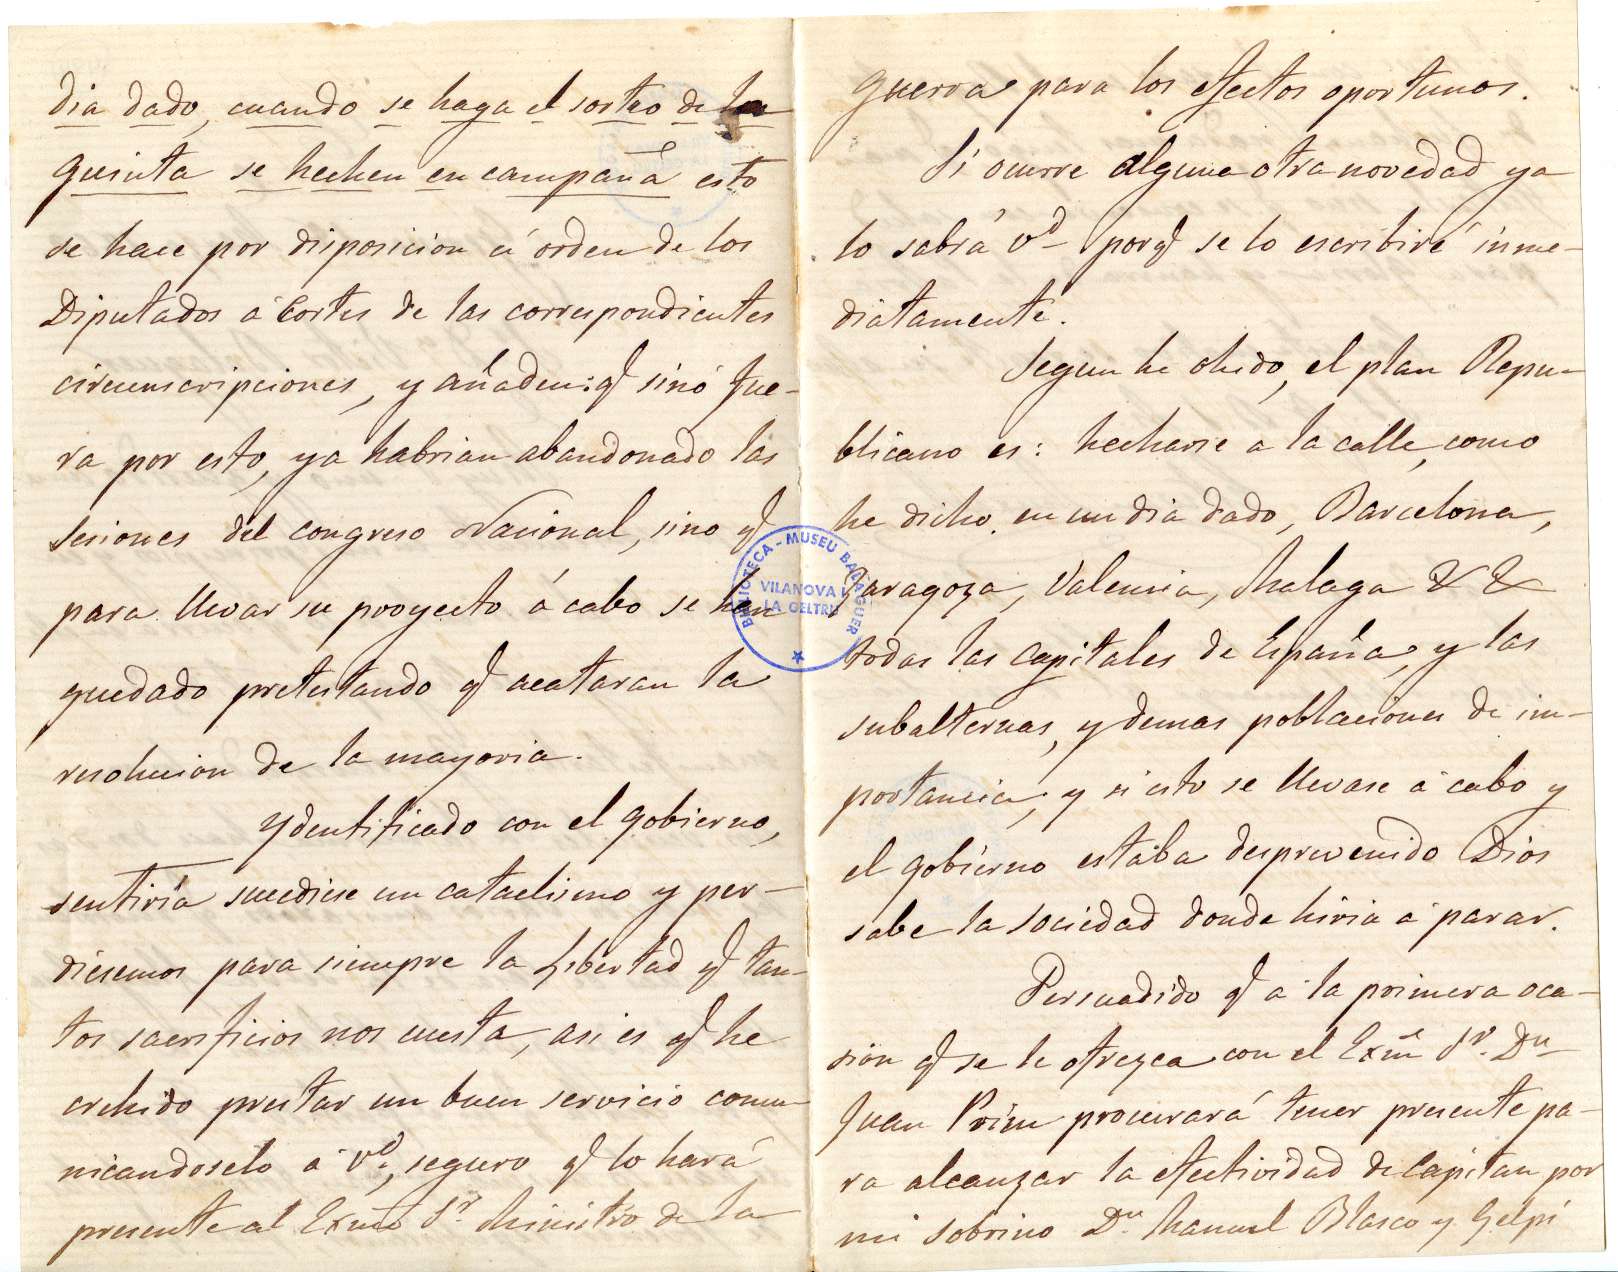 dia dado, cuando se haga el sorteo de la
quinta se hechen en campaña esto
se hace por disposicion ú orden de los
Diputados á Cortes de las correspondientes
circunscripciones, y añaden: q sinó fue-
ra por esto, ya habrian abandonado las
sesiones del congreso Nacional, sino q
para llevar su proyecto á cabo se han
quedado pretestando q acataran la
resolucion de la mayoria.
Ydentificado con el gobierno,
sentiría sucediese un cataclismo y per-
diesemos para siempre la Libertad q tan-
tos sacrificios nos cuesta, asi es q he
crehido prestar un buen servicio comu-
nicandoselo á Vd, seguro q lo hará
presente al Exmo Sr Ministro de la
guerra para los efectos oportunos.
Si ocurre alguna otra novedad ya
lo sabrá Vd porq se lo escribiré inme-
diatamente.
Segun he ohido, el plan Repu-
blicano es: hecharse a la calle, como
he dicho, en un dia dado, Barcelona,
Zaragoza, Valencia, Malaga & &
todas las Capitales de España, y las
subalternas, y demas poblaciones de im-
portancia; y si esto se llevase á cabo y
el gobierno estaba desprevenido Dios
sabe la sociedad donde hiria á parar.
Persuadido q a la primera oca-
sion q se le ofrezca con el Exmo Sr. Dn
Juan Prim procurará tener presente pa-
ra alcanzar la efectividad de Capitan por
mi sobrino Dn Manuel Blasco y Gelpí
BIBLIOTECA - MUSEU BALAGUER
VILANOVA I
LA GELTRÚ